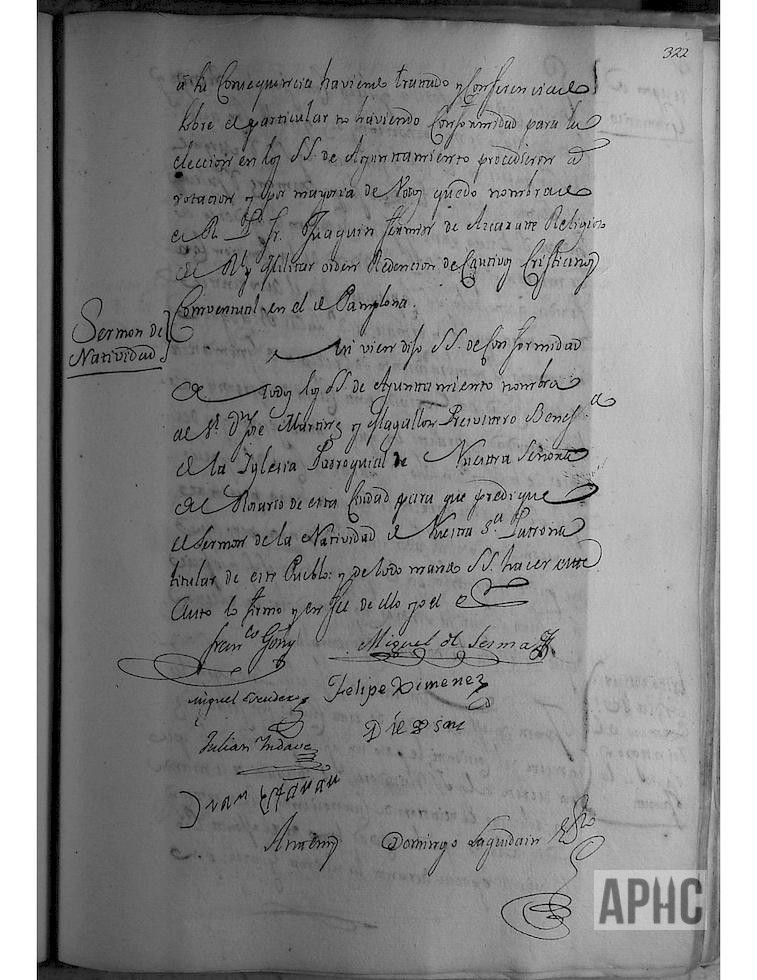 322
â su Consequencia haviendo tratado y Conferenciado
sobre el particular no haviendo Conformidad para la
eleccion en los SS. de Ayuntamiento procedieron a
votacion y por mayoria de Votos quedo nombrado
el R. Pe. Fr. Joaquin fermin de Religioso
del Rl. y Militar orden Redencion de Cautivos Cristianos
Conventual en el de Pamplona.
Sermon de
Natividad
Asi vien dijo SS. de Conformidad
de todos los SS. de Ayuntamiento nombra
al Sr. Dn. Joe Martinez y Magallon Presvitero Benef.do
de la Iglesia Parroquial de Nuestra Señora
del Rosario de esta Ciudad para que predique
el Sermon de la Natividad de Nuestra S.ra Patrona
titular de este Pueblo: y de todo mando SS. hacer este
Auto lo firmo y en fee de ello yo el
Fran.co Goñy
Miguel de Sesma
Miguel
Felipe Ximenez
Julian Yndave
Juan
Antemy
Domingo Laquidain
APHC